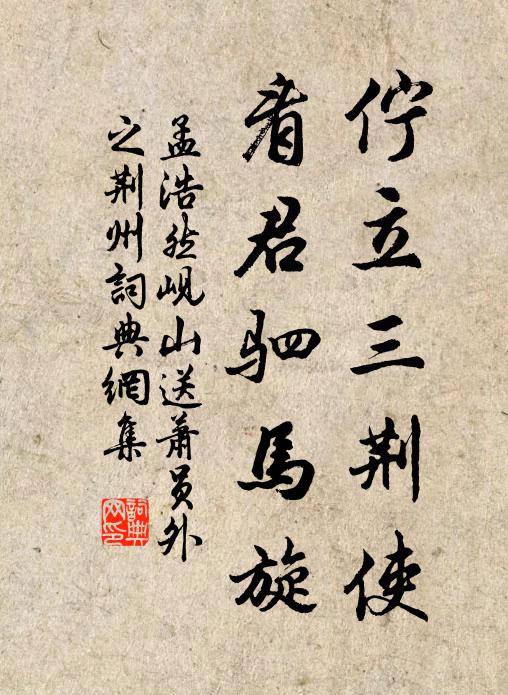 佇立三荆使
看君駟馬旋
孟浩然峴山送蕭員外
之荆州詞典網集
詞典
网印